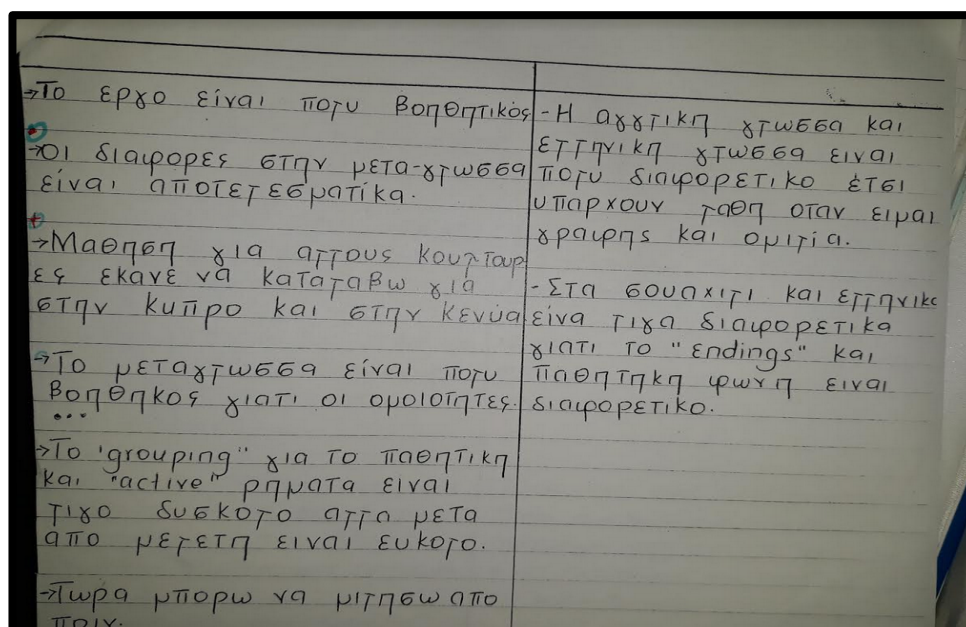 →Το εργο είναι πολυ βοηθητικός
→Οι διαφορες στην μετα-γλωσσα
είναι αποτελεσματικα.
→Μαθηση για αλλους κουλτουρ
ες εκανε να καταλαβω για
στην κυπρο και στην κενυα
→Το μεταγλωσσα είναι πολυ
βοηθηκος γιατι οι ομοιοτητες.
...
→Το 'grouping" για το παθητικη
και "active" ρηματα ειναι
λιγο δυσκολο αλλα μετα
απο μελετη ειναι ευκολο.
→Τωρα μπορω να μιλησω απο
πριν.
-Η αγγλικη γλωσσα και
ελληνικη γλωσσα ειναι
πολυ διαφορετικο έτσι
υπαρχουν λαθη οταν ειμαι
γραφης και ομιλία.
-Στα σουαχιλι και ελληνικα
είνα λιγα διαφορετικα
γιατι το "endings" και
παθητηκη φωνη ειναι
διαφορετικο.